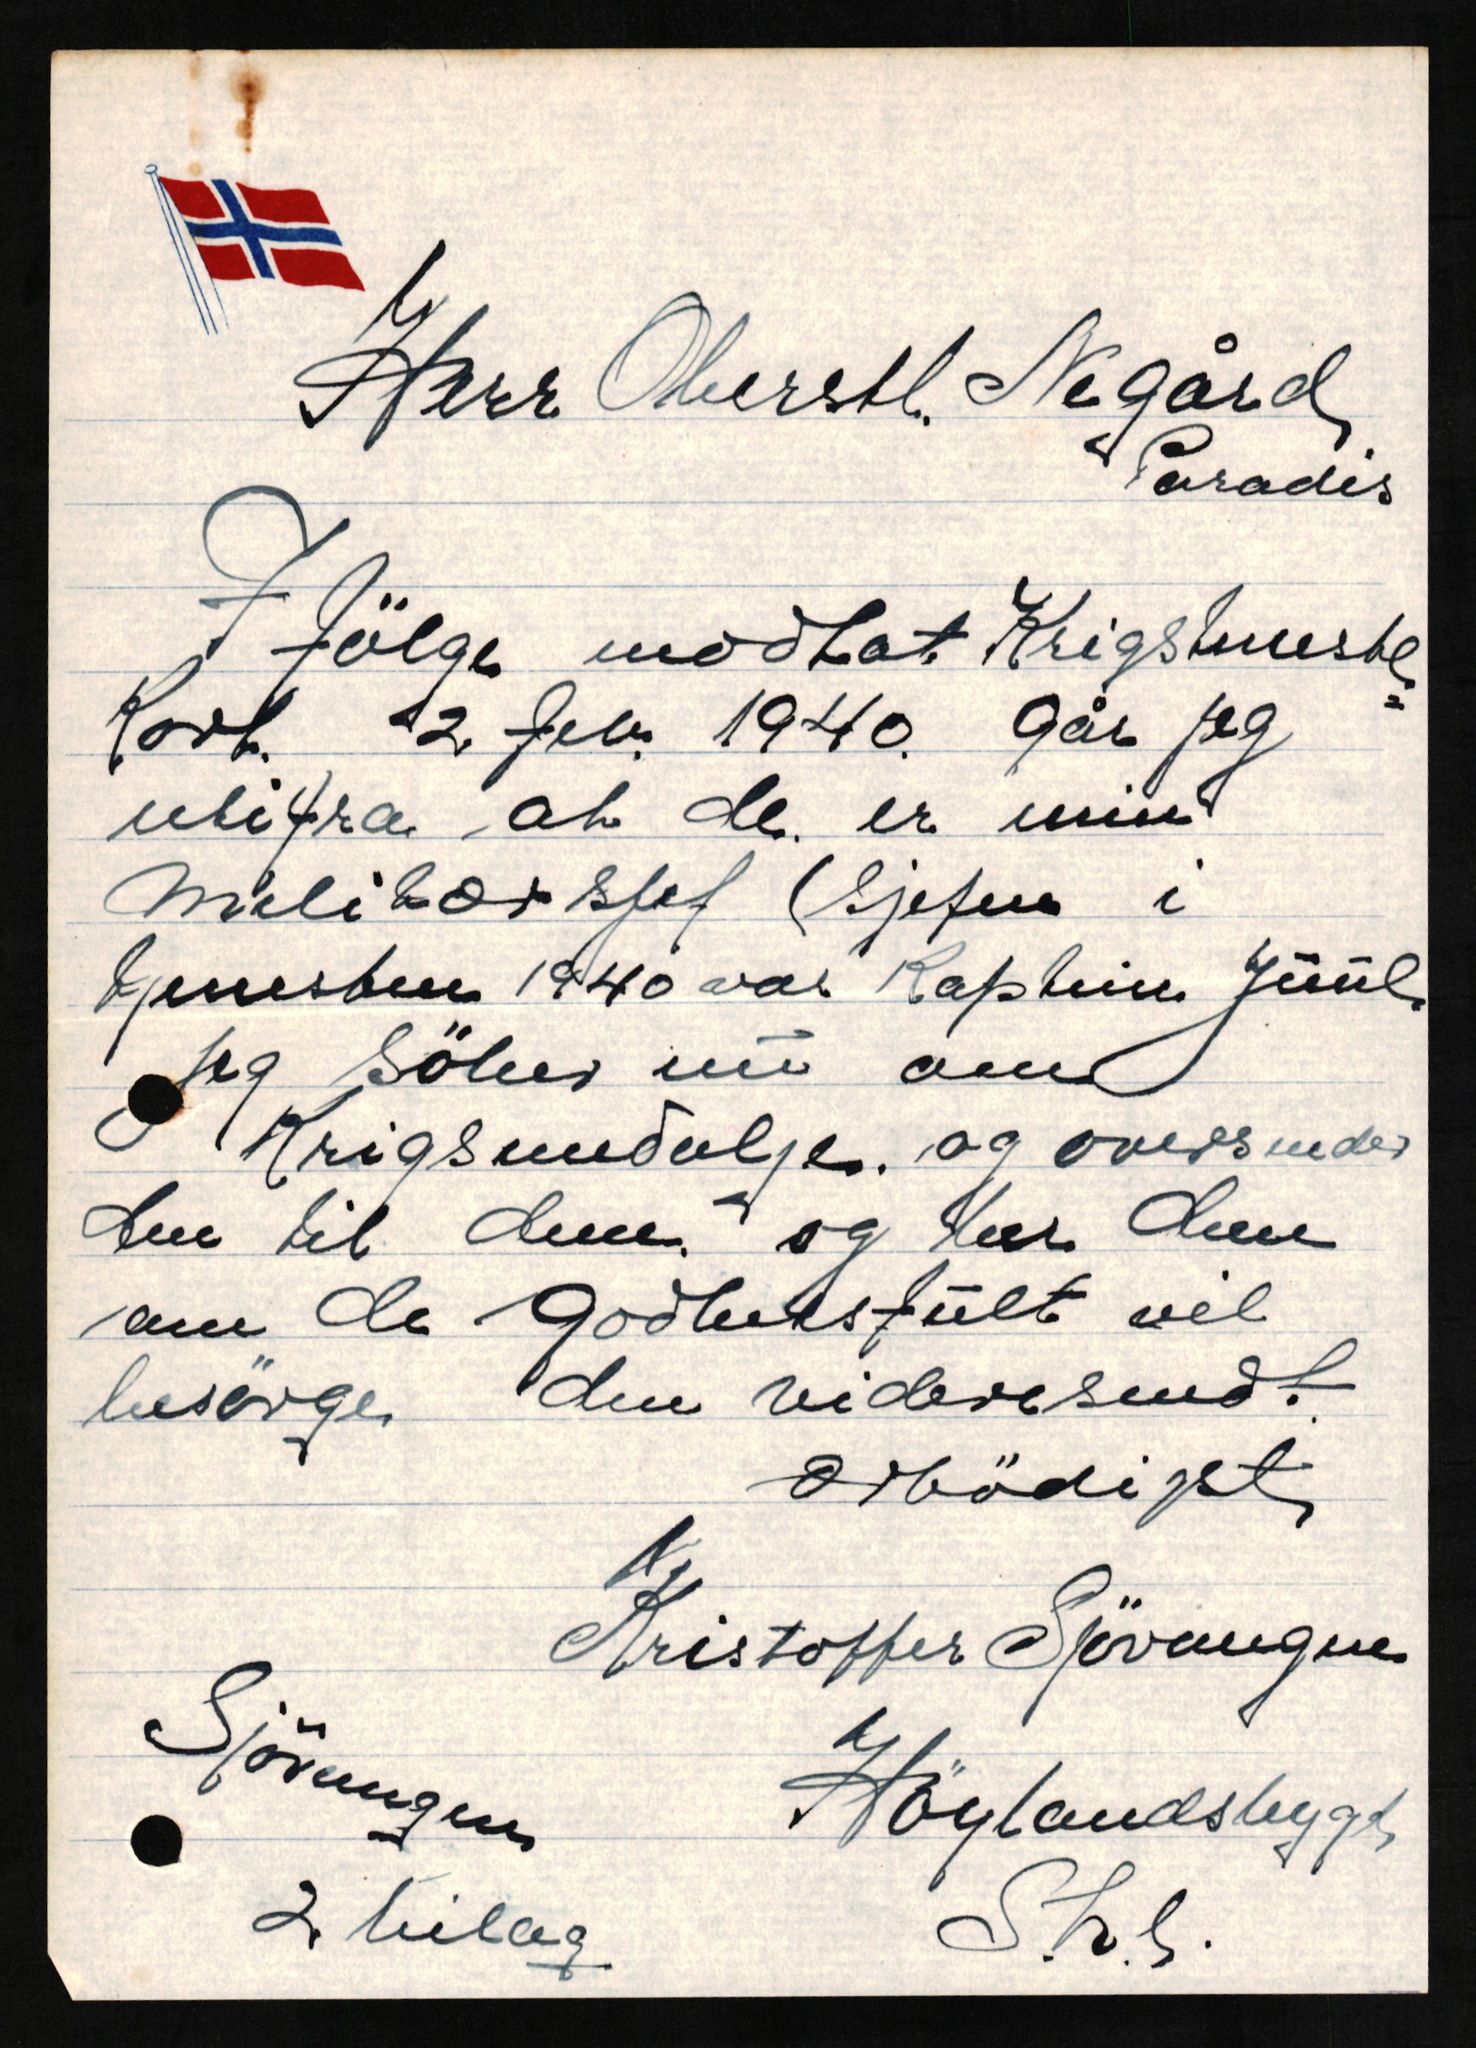 Herr Oberstl. Negård,
Paradis
I følge modtat Krigstjenestl=
Kort. 2. feb. 1940. går jeg
utifra at de. er min
Militærsjef (sjefen i
tjenesten 1940 var Kaptein Júúl.
Jeg söker nú om
Krigsmedalje. og oversender
den til dem. og ber dem
om de godhetsfúlt vil
besörge den videresendt.
ærbödigst,
Kristoffer Sjövangen
Sjövangen
Höylandsbygd,
S.h.l.
2. bilag